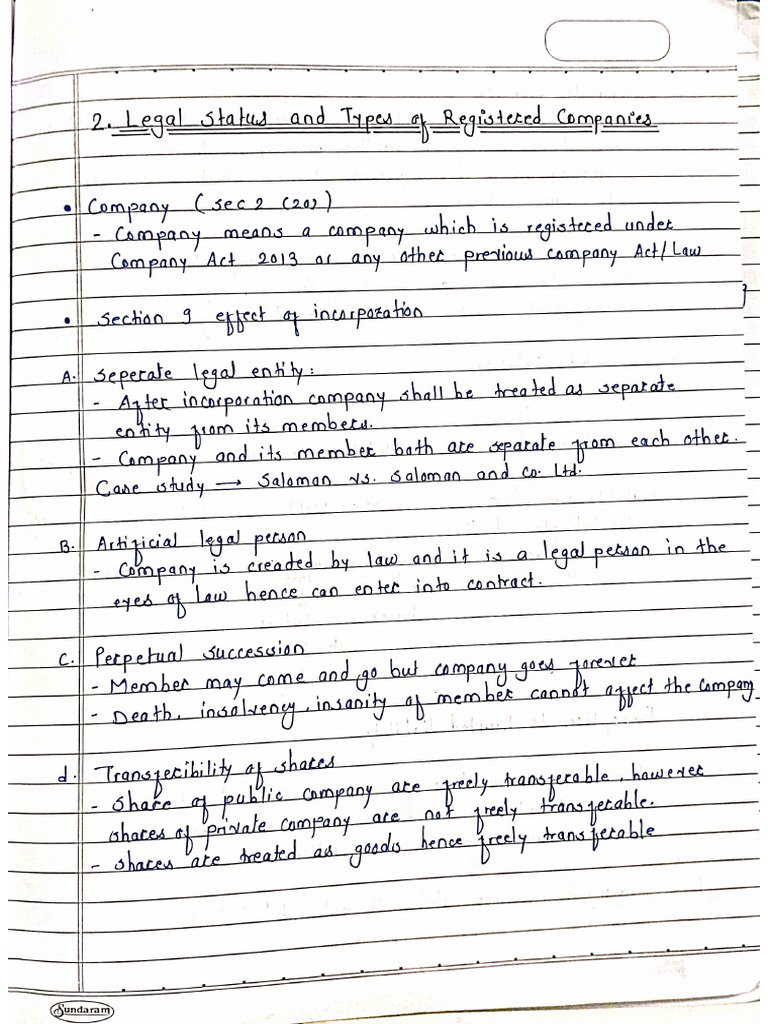 2. Legal Status and Types of Registered Companies
• Company (sec 2 (20))
- Company means a company which is registered under
Company Act 2013 or any other previous company Act/Law
• Section 9 effect of incorporation
A. Seperate legal entity:
- After incorporation company shall be treated as separate
entity from its members.
- Company and its member both are separate from each other.
Case study → Saloman vs. Saloman and Co. Ltd.
B. Artificial legal person
- Company is created by law and it is a legal person in the
eyes of law hence can enter into contract.
C. Perpetual succession
- Member may come and go but company goes forever
- Death, insolvency, insanity of member cannot affect the company
d. Transferibility of shares
- Share of public company are freely transferable, however
shares of private company are not freely transferable.
- Shares are treated as goods hence freely transferable
Sundaram